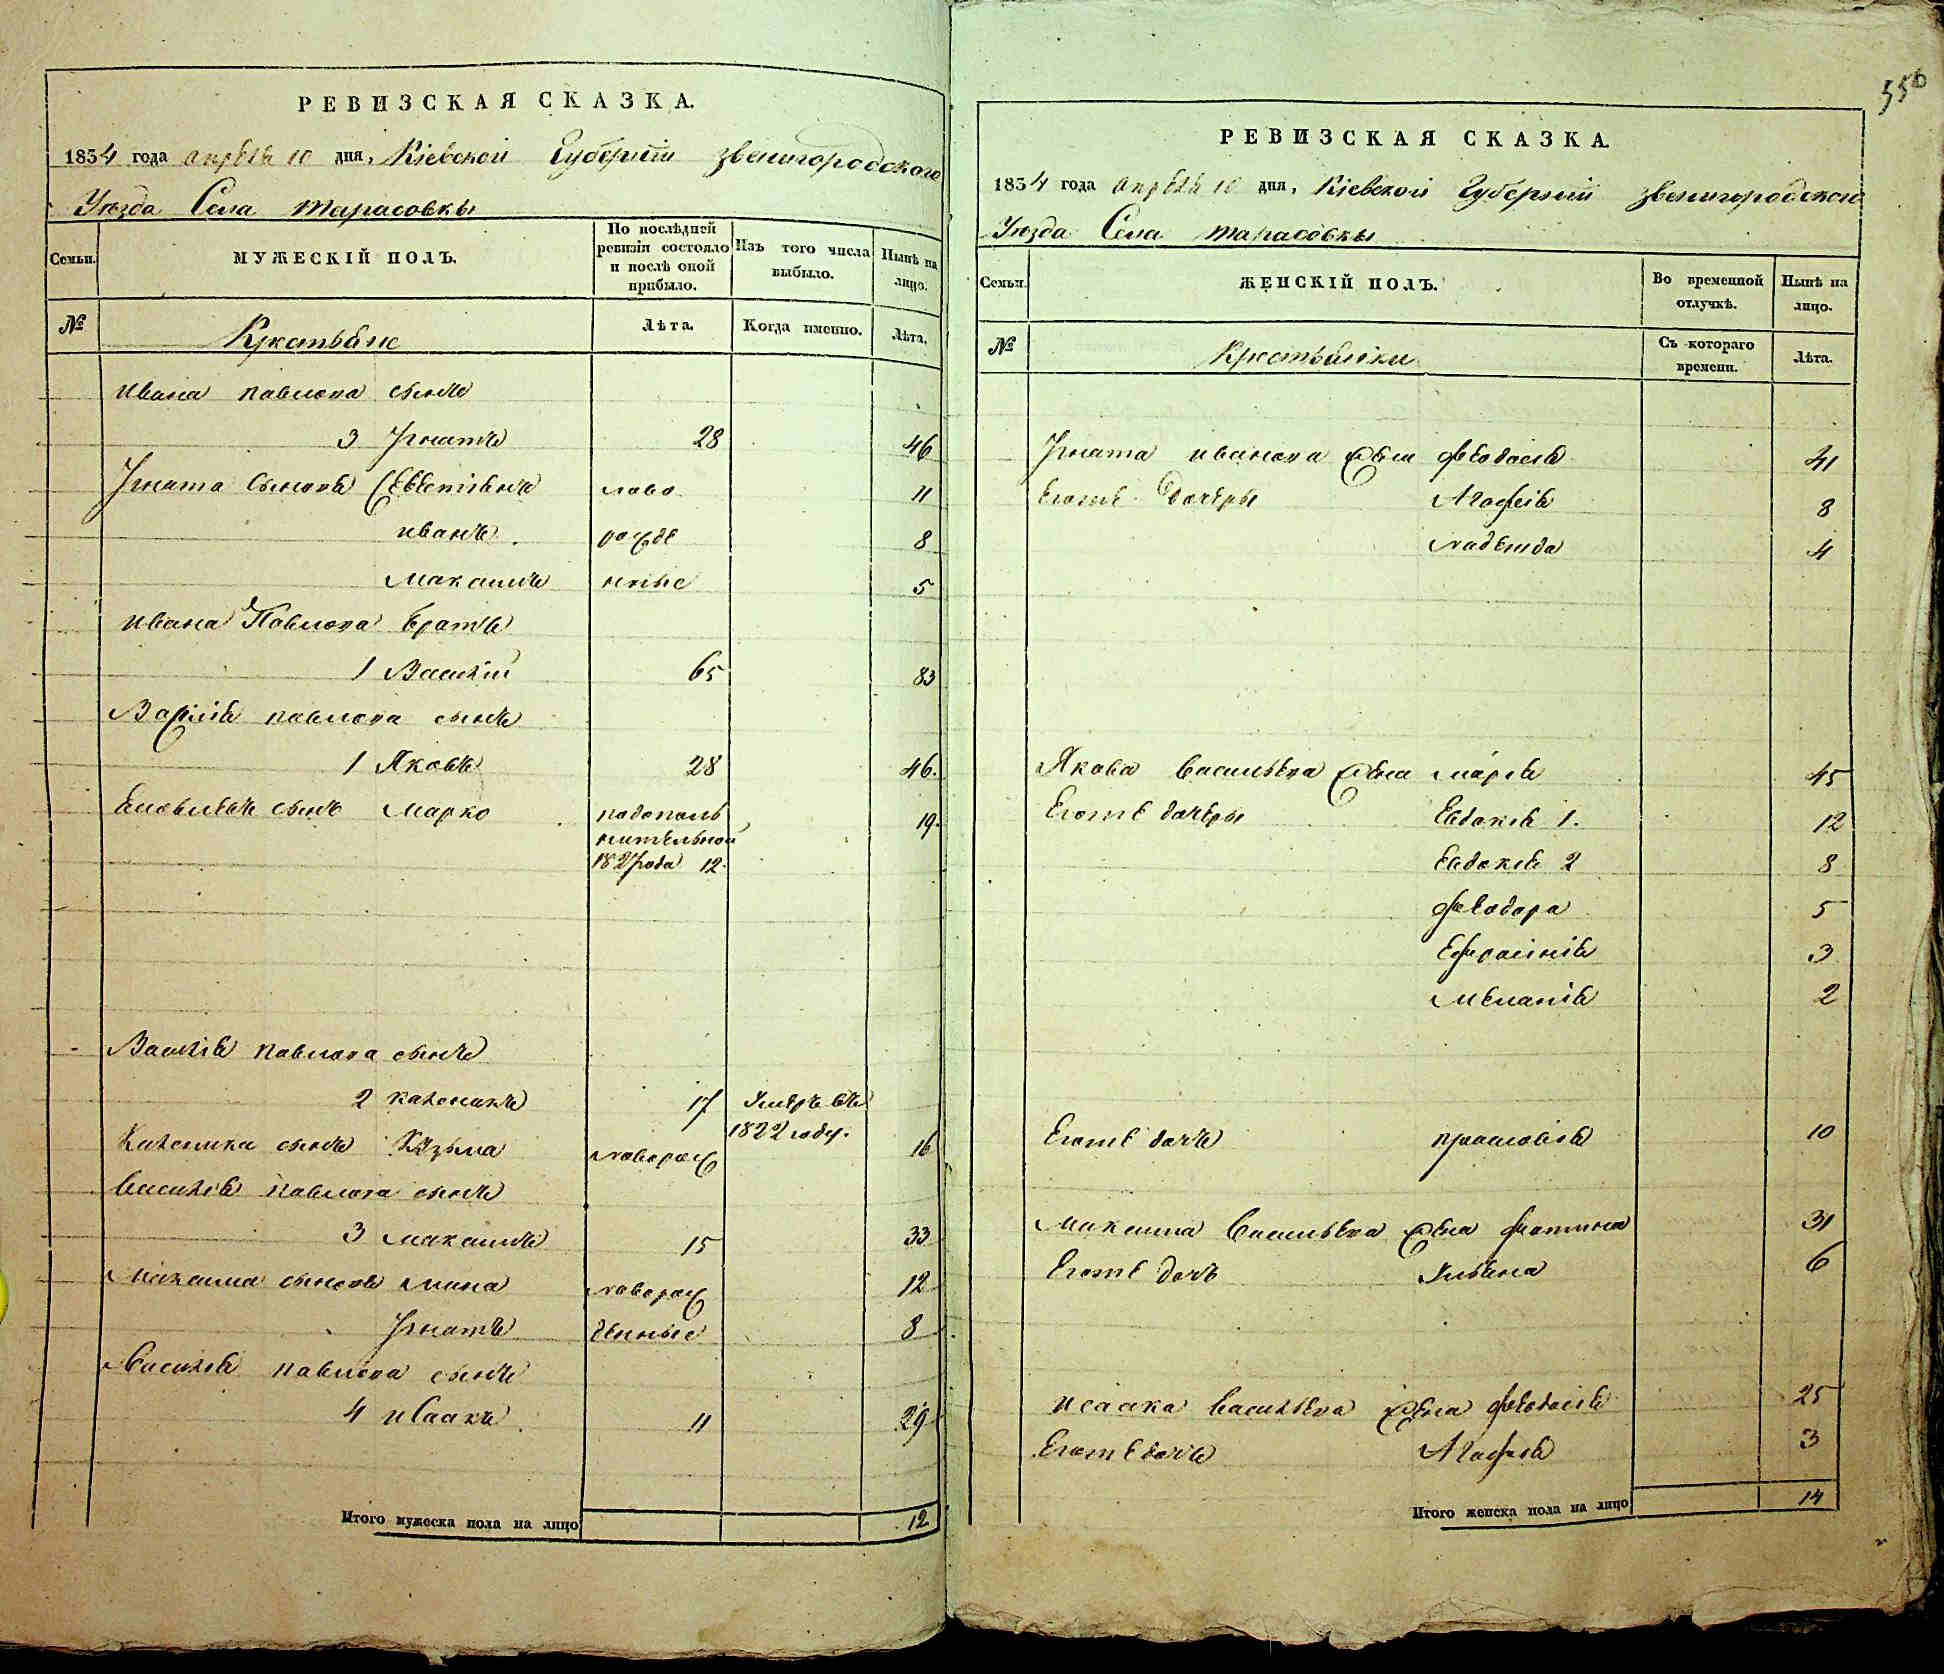 РЕВИЗСКАЯ СКАЗКА.
1834 года апрѣля 10 дня, Кіевской Губерніи звенигородского
Уѣзда Села тарасовки
Семьи.
МУЖЕСКІЙ ПОЛЪ.
По послѣдней ревизіи состояло и послѣ оной прибыло.
Изъ того числа выбыло.
Нынѣ на лицо.
№
Крестьяне
Лѣта.
Когда именно.
Лѣта.
ивана павлова сынъ
3 Игнатъ 28 46
Игната сыновя Евстпіянъ ново 11
иванъ рожде 8
Максимъ нные 5
ивана Павлова братъ
1 Василій 65 83
Василія павлова сынъ
1 Яковъ 28 46.
Яковлевъ сынъ Марко подополъ 19.
нительной
1827 года 12.
Василія павлова сынъ
2 каленикъ 17 Умеръ въ
1822 году.
Каленика сынъ Кузьма наворож 16
Василія павлова сынъ
3 максимъ 15 33
Максима сыновя мина наворож 12
Игнатъ денные 8
Василія павлова сынъ
4 исаакъ 11 29
Итого мужеска пола на лицо 12
556
РЕВИЗСКАЯ СКАЗКА
1834 года апрѣля 10 дня, Кіевской Губерніи звенигородского
Уѣзда Села тарасовки
Семьи.
ЖЕНСКІЙ ПОЛЪ.
Во временной отлучкѣ.
Нынѣ на лицо.
№
Крестьянки
Съ котораго времени.
Лѣта.
Игната иванова жена феодосія 41
Егоже дочери Агафія 8
надежда 4
Якова васильева жена марія 45
Егоже дочери Евдокія 1. 12
Евдокія 2 8
феодора 5
Ефросінія 3
меланія 2
Егоже дочъ прасковія 10
максима васильева жена фотина 31
Егоже дочъ Ульяна 6
исаака васильева жена феодосія 25
Егоже дочъ Агафія 3
Итого женска пола на лицо 14